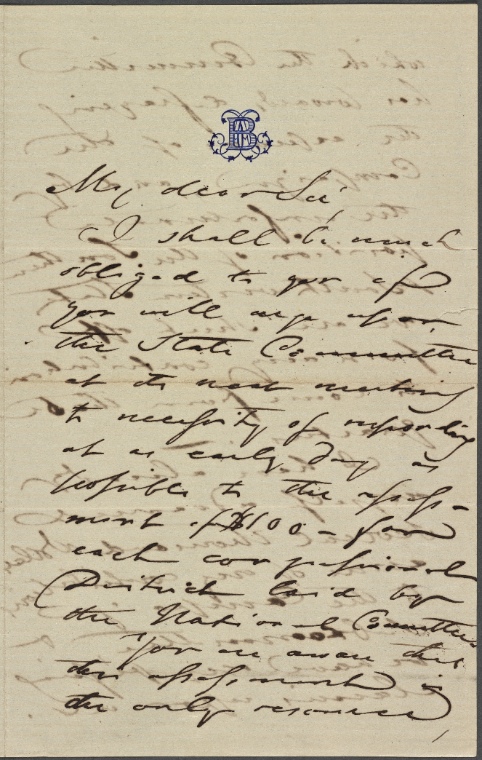 My dear Sir,
I shall be much
obliged to you if
you will urge upon
the State Committee
at its next meeting
the necessity of responding
at as early day as
possible to the assess-
ment of $100 - from
each congressional
District laid by
the National Committee
You are aware that
this assessment is
the only resource,